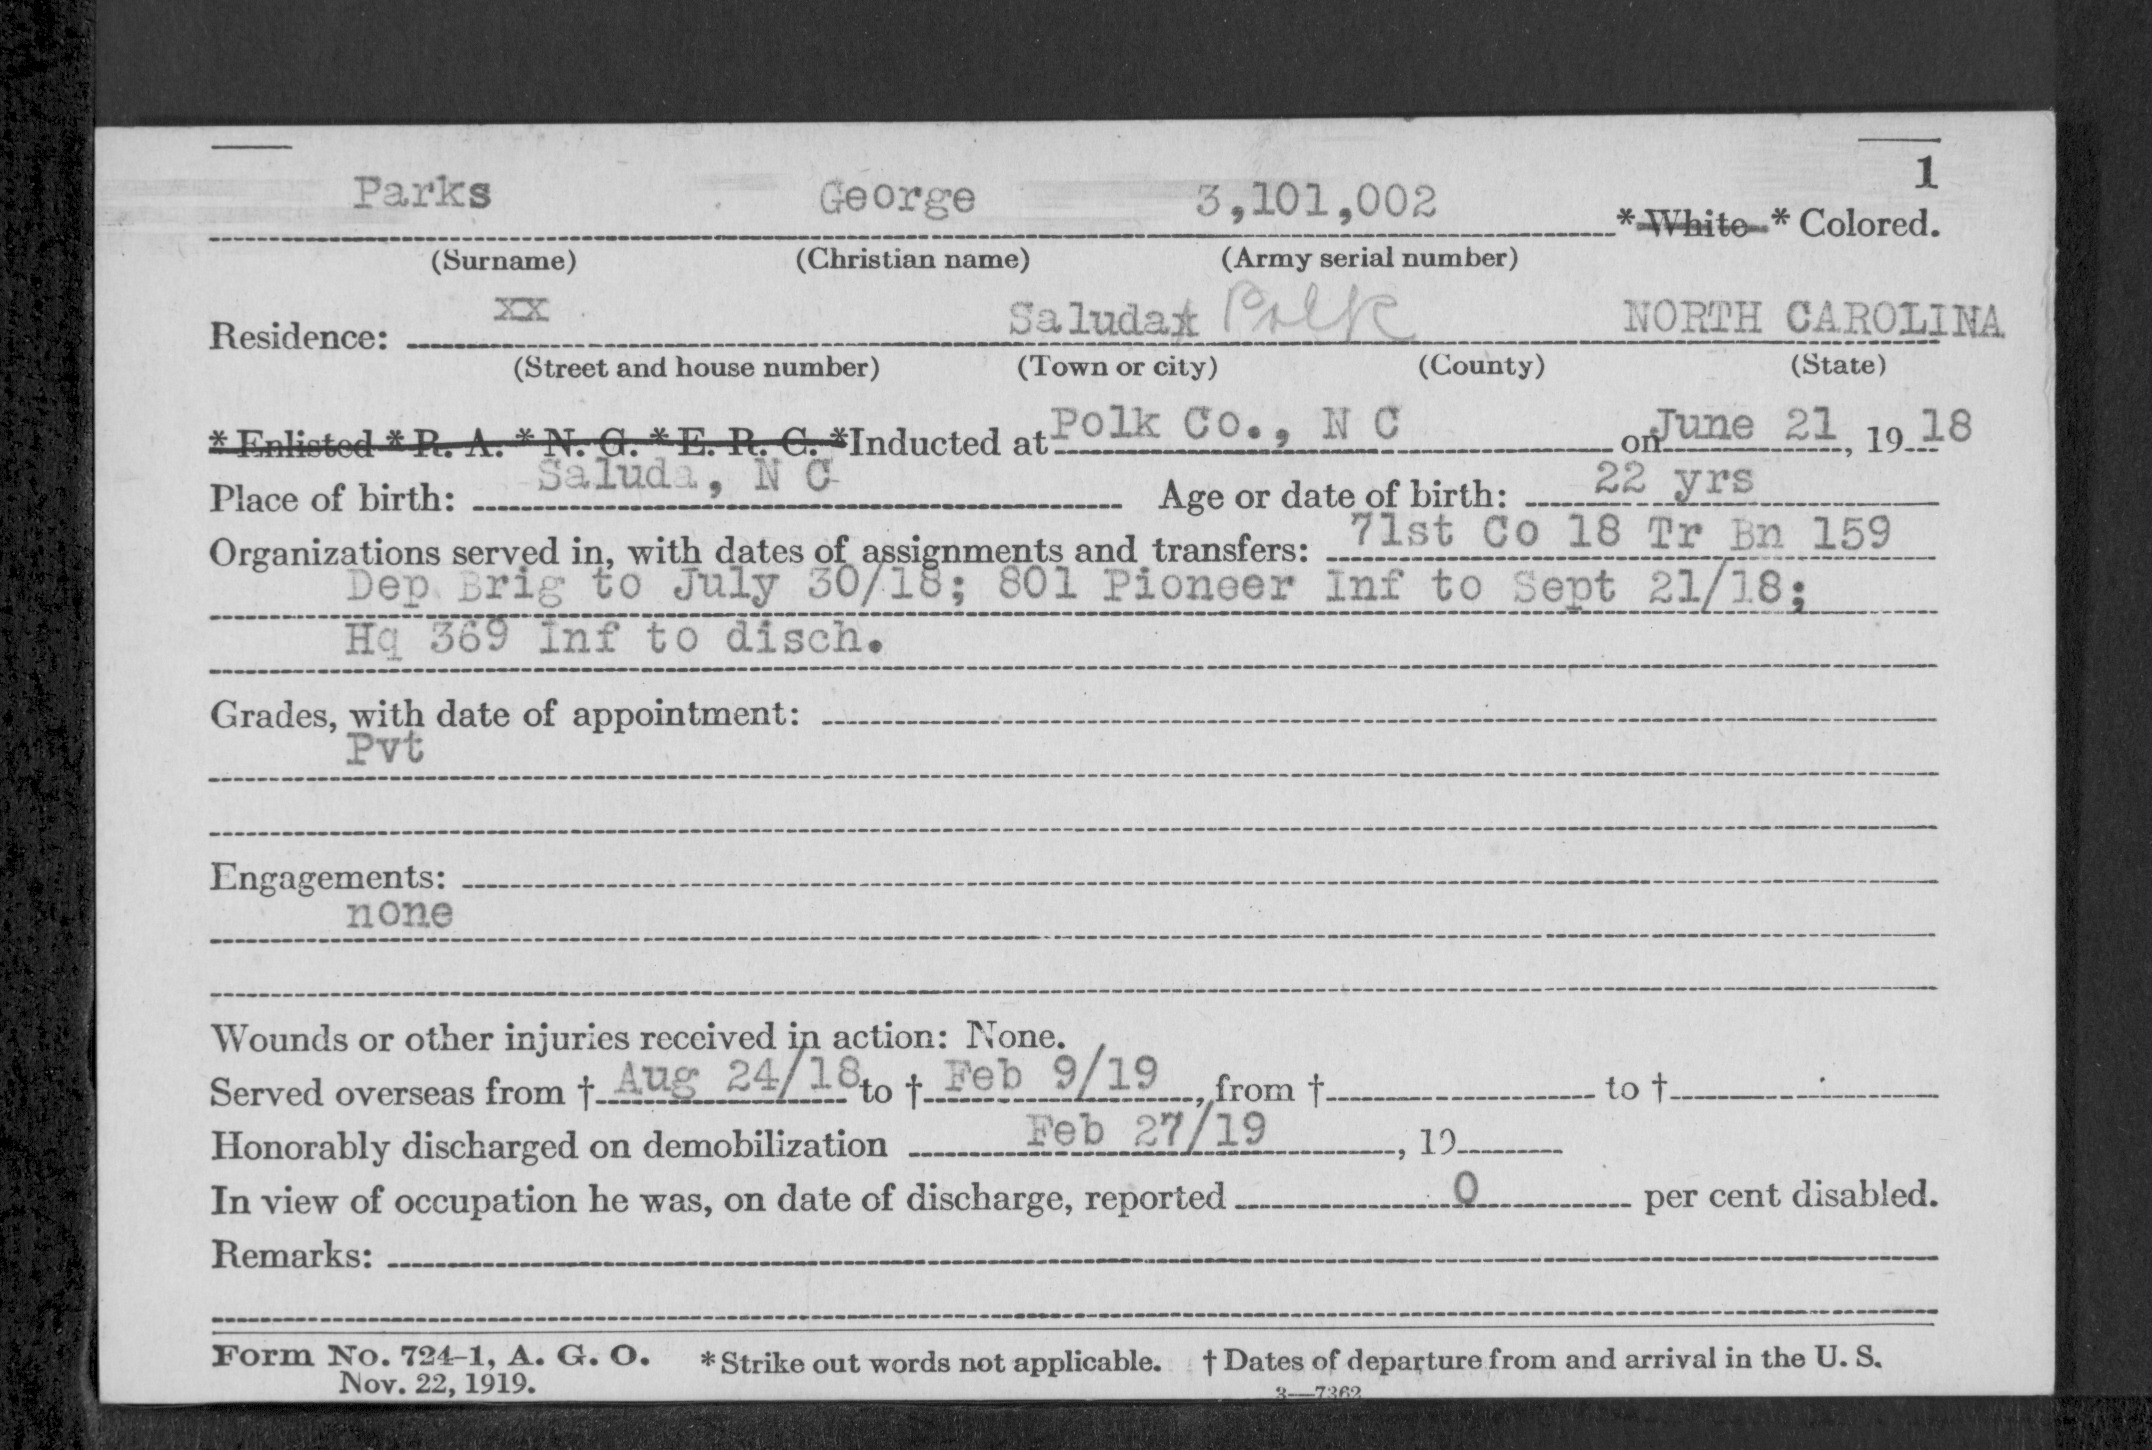 1
Parks George 3,101,002 * White * Colored.
(Surname) (Christian name) (Army serial number)
Residence: xx Saluda Polk NORTH CAROLINA
(Street and house number) (Town or city) (County) (State)
* Enlisted * R. A. * N. G. * E. R. C. * Inducted at Polk Co., N C on June 21, 19 18
Place of birth: Saluda, N C Age or date of birth: 22 yrs
Organizations served in, with dates of assignments and transfers: 71st Co 18 Tr Bn 159
Dep Brig to July 30/18; 801 Pioneer Inf to Sept 21/18;
Hq 369 Inf to disch.
Grades, with date of appointment:
Pvt
Engagements:
none
Wounds or other injuries received in action: None.
Served overseas from † Aug 24/18 to † Feb 9/19, from † to †
Honorably discharged on demobilization Feb 27/19, 19
In view of occupation he was, on date of discharge, reported 0 per cent disabled.
Remarks:
Form No. 724-1, A. G. O. * Strike out words not applicable. † Dates of departure from and arrival in the U. S.
Nov. 22, 1919. 3—7362